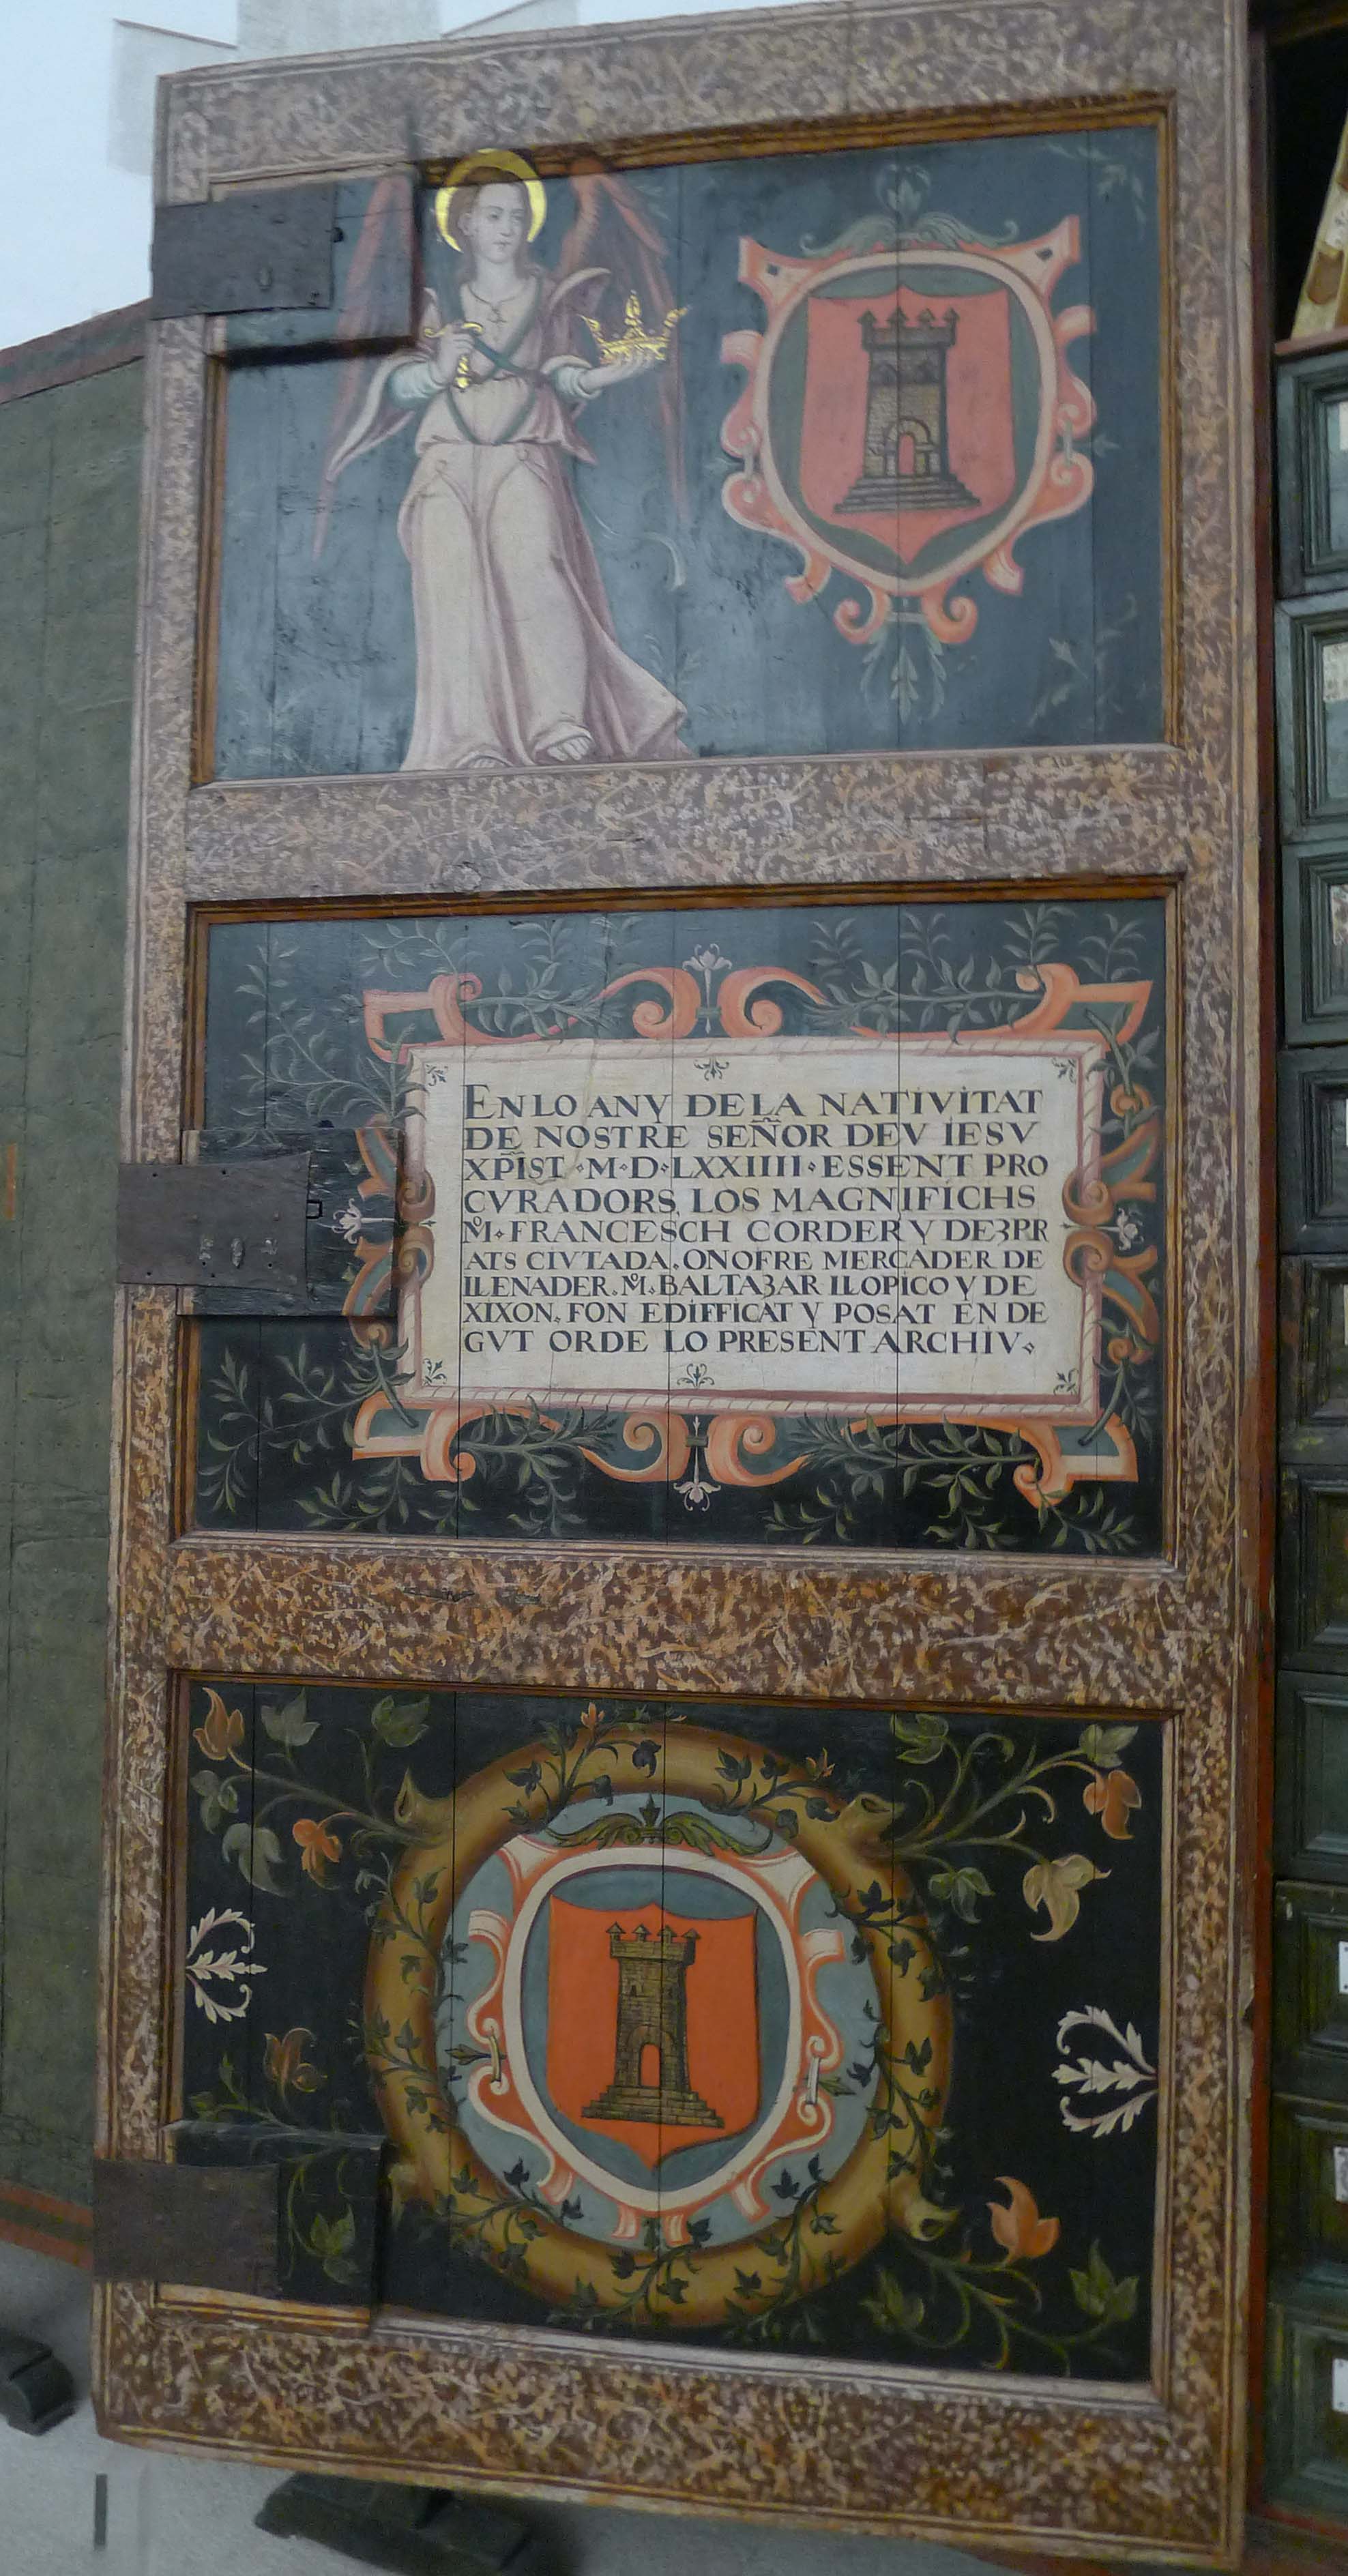 EN LO ANY DE LA NATIVITAT
DE NOSTRE SEÑOR DEV IESV
XPIST · M · D · LXXIIII · ESSENT PRO
CVRADORS LOS MAGNIFICHS
Mº · FRANCESCH CORDER Y DE3PR
ATS CIVTADA · ONOFRE MERCADER DE
LLENADER · Mº · BALTA3AR LLOPICO Y DE
XIXON · FON EDIFFICAT Y POSAT EN DE
GVT ORDE LO PRESENT ARCHIV ·